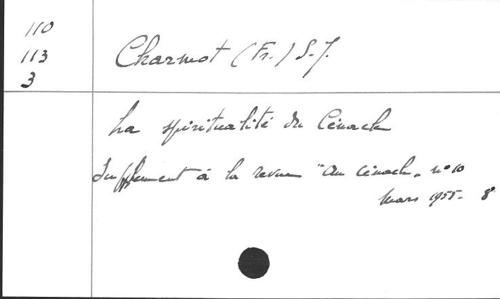 110
113
3
Charmot (Fr.) S.J.
La spiritualité du Cénacle
Supplément à la revue "Au Cénacle" n° 10
Mars 1955- 8°